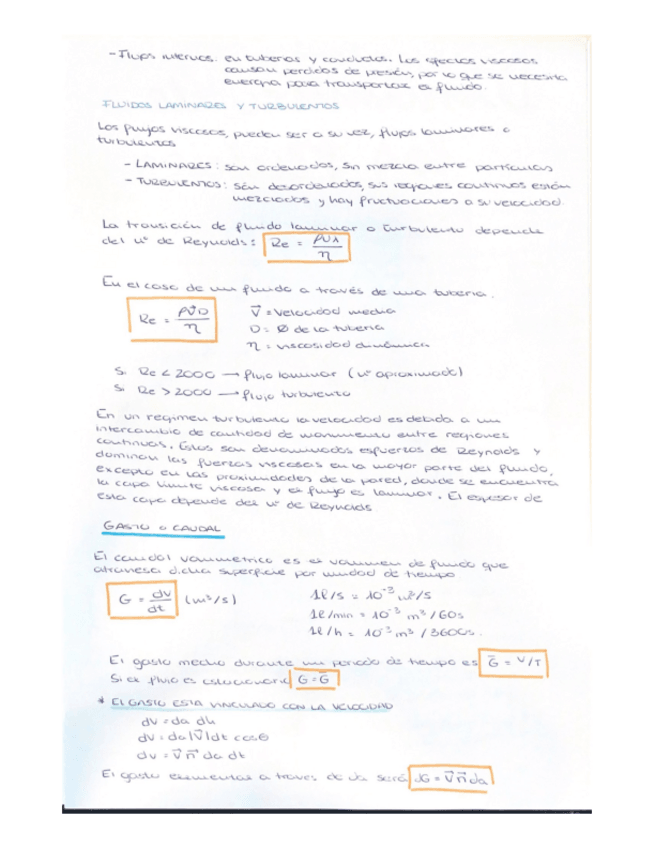 - Flujos internos: en tuberías y conductos. Los efectos viscosos
causan perdidas de presión, por lo que se necesita
energía para transportar el fluido.
FLUIDOS LAMINARES Y TURBULENTOS
Los flujos viscosos, pueden ser a su vez, flujos laminares o
turbulentos
- LAMINARES: son ordenados, sin mezcla entre partículas
- TURBULENTOS: són desordenados, sus regiones continuas están
mezcladas y hay fluctuaciones a su velocidad.
La transición de fluido laminar a turbulento depende
del nº de Reynolds: Re = ρVλ/η
En el caso de un fluido a través de una tubería.
Re = ρV̄D/η
V̄ = velocidad media
D = Ø de la tubería
η = viscosidad dinámica
Si Re < 2000 → flujo laminar (nº aproximado)
Si Re > 2000 → flujo turbulento
En un regimen turbulento la velocidad es debida a un
intercambio de cantidad de movimiento entre regiones
continuas. Estos son denominados esfuerzos de Reynolds y
dominan las fuerzas viscosas en la mayor parte del fluido,
excepto en las proximidades de la pared, donde se encuentra
la capa límite viscosa y el flujo es laminar. El espesor de
esta capa depende del nº de Reynolds
GASTO o CAUDAL
El caudal volumétrico es el volumen de fluido que
atraviesa dicha superficie por unidad de tiempo
G = dv/dt (m³/s)
1l/s = 10⁻³ m³/s
1l/min = 10⁻³ m³/60s
1l/h = 10⁻³ m³/3600s.
El gasto medio durante un periodo de tiempo es Ḡ = V/T
Si el flujo es estacionario G = Ḡ
* El GASTO ESTA VINCULADO CON LA VELOCIDAD
dv = da dh
dv = da |V⃗| dt cosθ
dv = V⃗ n⃗ da dt
El gasto elemental a traves de da será dG = V⃗ n⃗ da